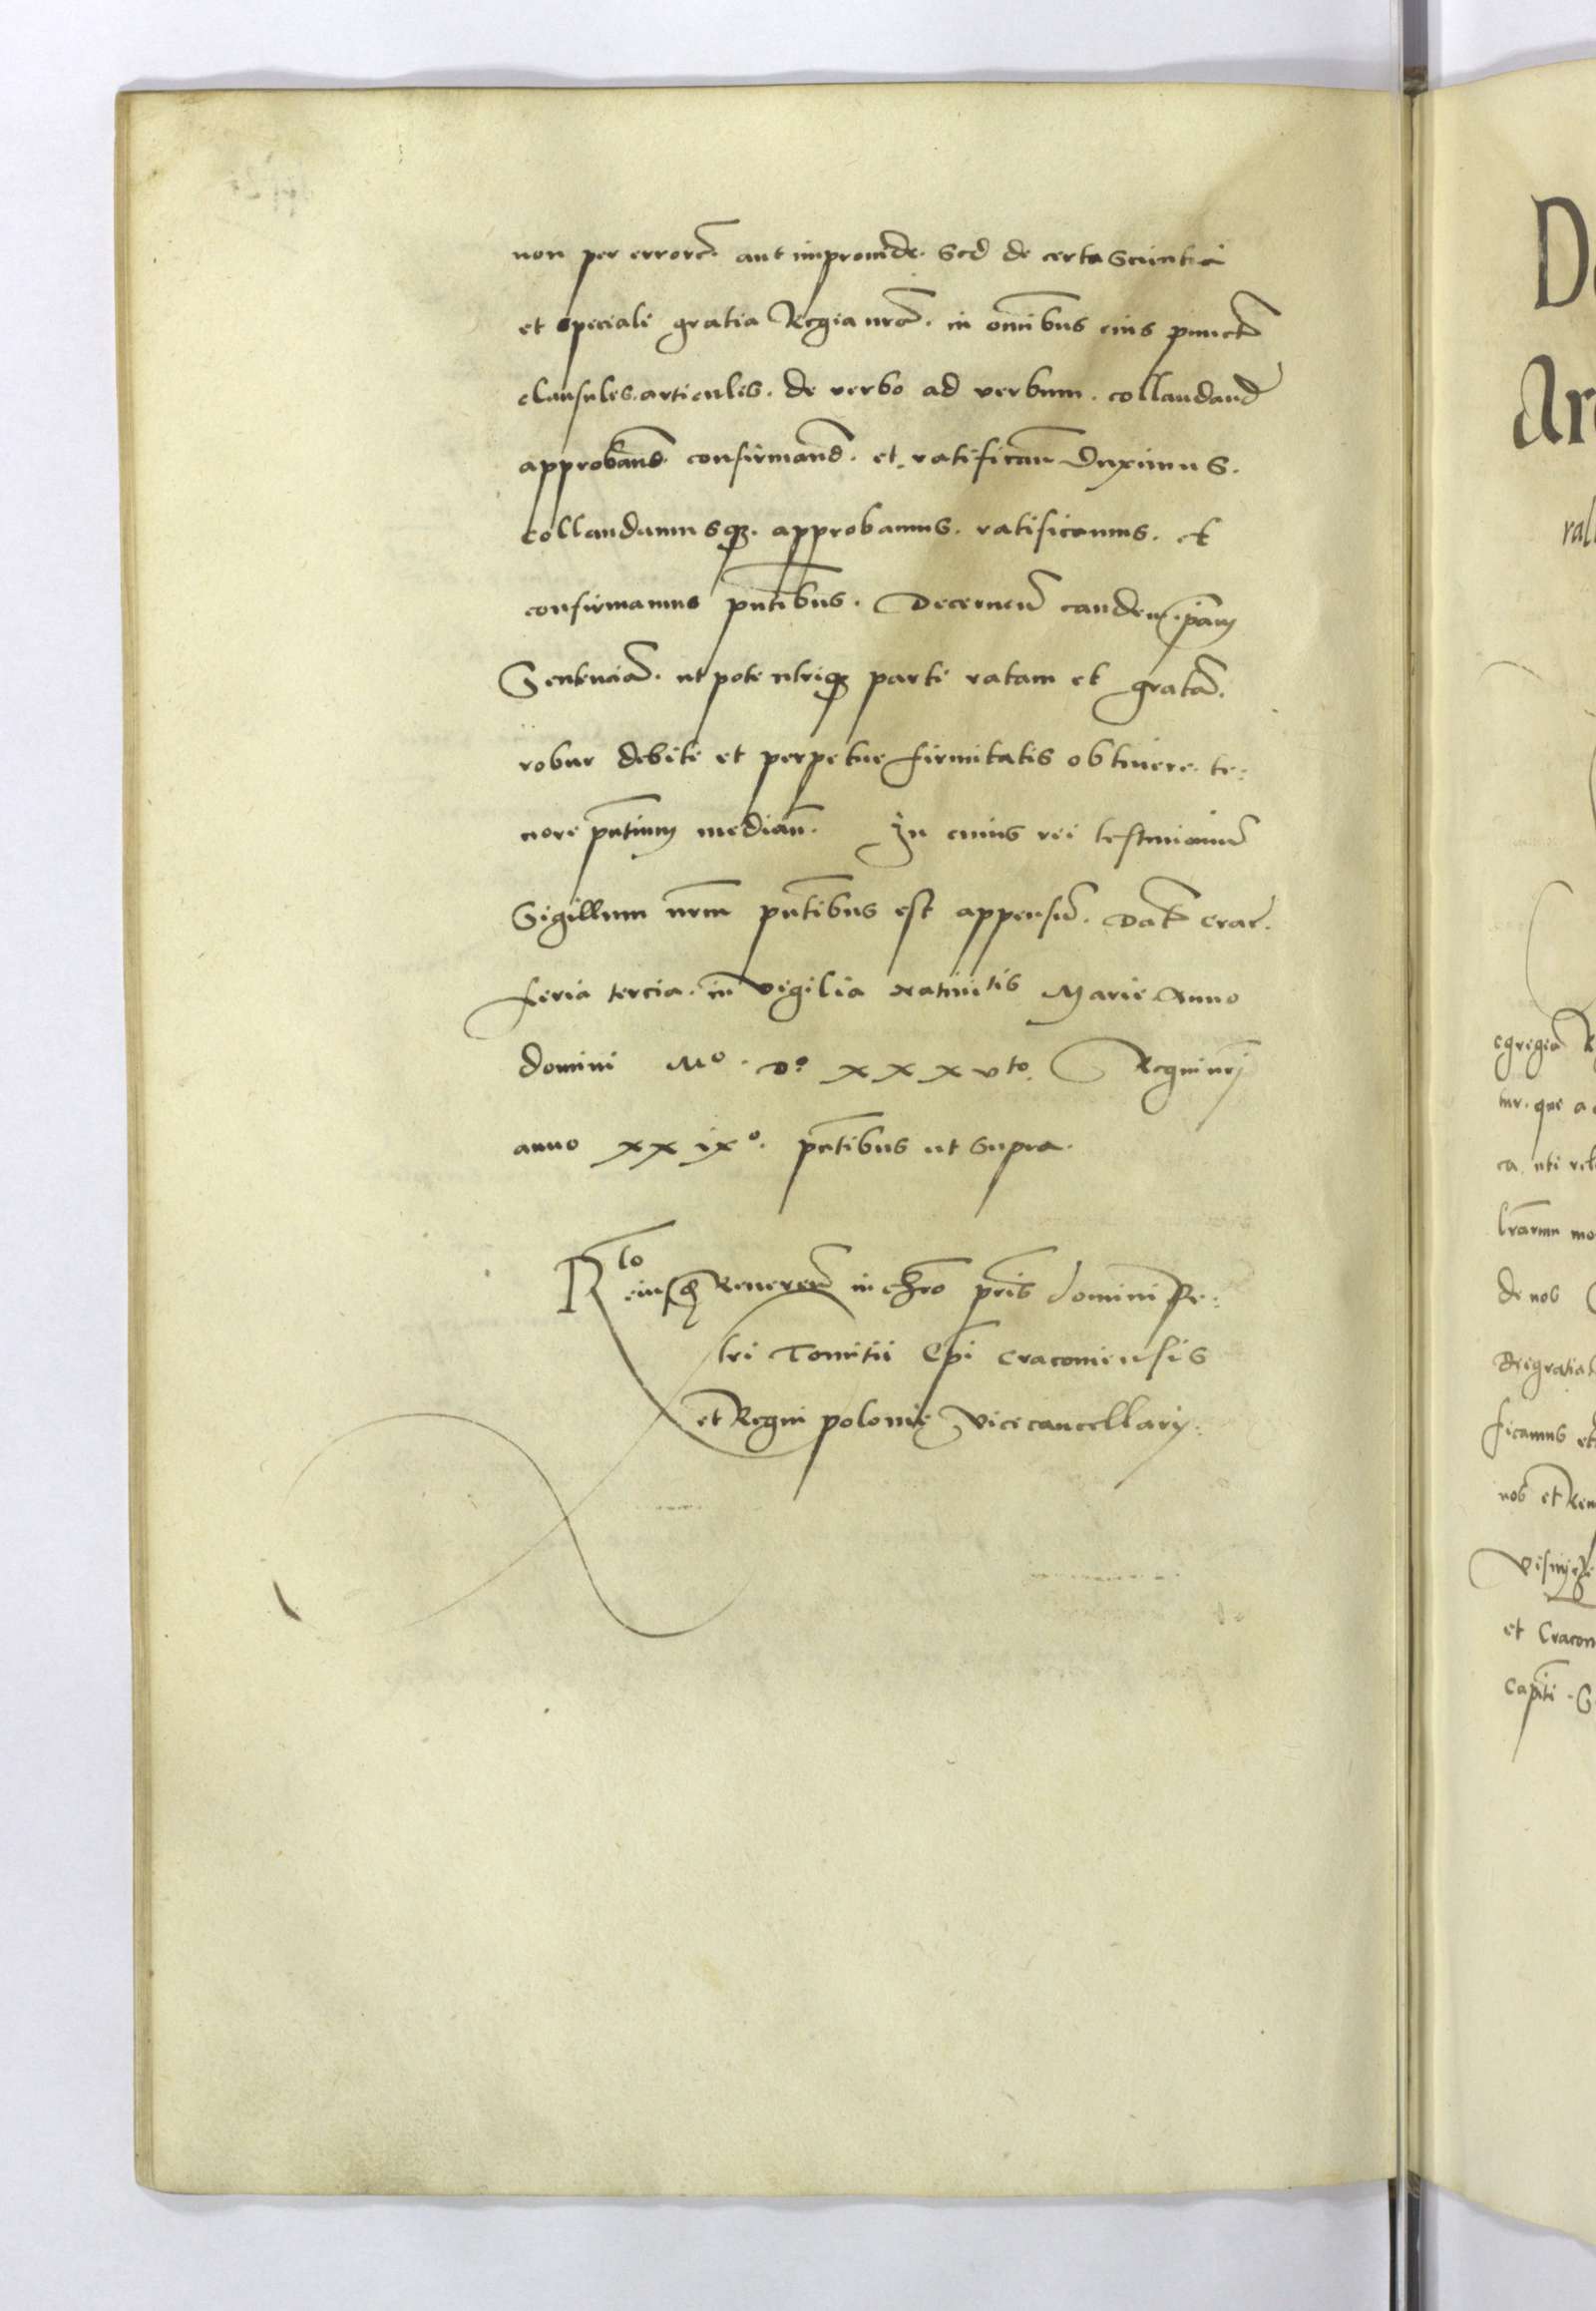 non per errorē. aut improuide. Sed de certa Scientia
et speciali gratia Regia nrā. in omībus eius punct
clausules. articules. de verbo ad verbum. collaudand
approband. confirmand. et. ratificañ Duximus.
collaudamusqꝫ. approbamus. ratificamus. et
confirmamus pn̄tibus. Decerneñ eandem. ip̄am
Sentenciā. ut pote utriqꝫ parti ratam et gratā.
robur debite et perpetue firmitatis obtinere. te:
nore pn̄tium mediañ. In cuius rei testimoniū
Sigillum nrm̄ pn̄tibus est appensū. Dat Crac.
feria tercia. in vigilia Natiuitis Marie Anno
domini Mº. Dº. xxxvto. Regni nrī
anno xxixº. pn̄tibus ut Supra.
Rto
eiusdē Reueren in chro pr̄is domini Pe:
tri Tomitii Ep̄i Cracouiensis
et Regni polonie Vicecancellarij.
D
Ar
egregia
tur. que a
ca. uti
lrārum
de nos
Dei gratia
ficamus et
nob et
et Cracou
Capiti.